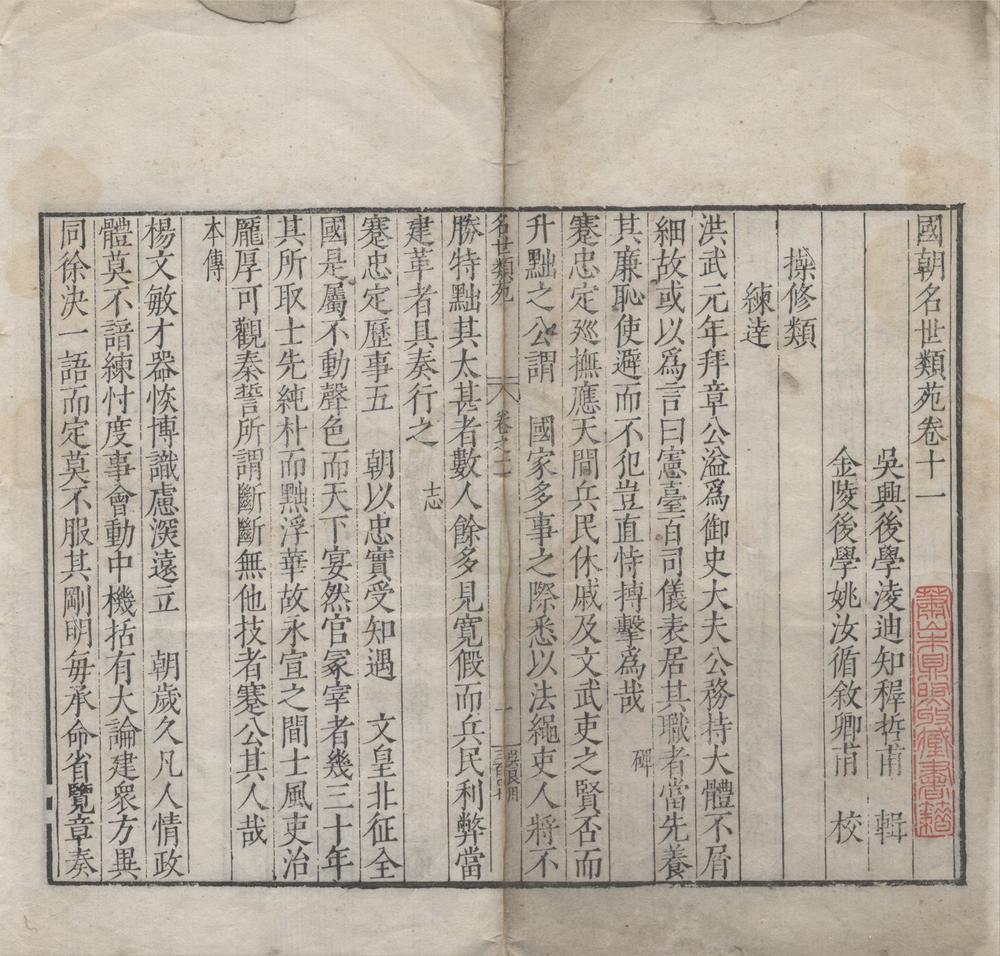 國朝名世類苑卷十一
吳興後學淩迪知穉哲甫　輯
金陵後學姚汝循敘卿甫　校
操修類
練達
洪武元年拜章公溢爲御史大夫公務持大體不屑
細故或以爲言曰憲臺百司儀表居其職者當先養
其廉恥使避而不犯豈直恃搏擊爲哉　碑
蹇忠定廵撫應天間兵民休戚及文武吏之賢否而
升黜之公謂　國家多事之際悉以法繩吏人將不
名世類苑　卷之十一　一
勝特黜其太甚者數人餘多見寛假而兵民利弊當
建革者具奏行之　志
蹇忠定歷事五　朝以忠實受知遇　文皇北征全
國是屬不動聲色而天下宴然官冢宰者幾三十年
其所取士先純朴而黜浮華故永宣之間士風吏治
龎厚可觀秦誓所謂斷斷無他技者蹇公其人哉
本傳
楊文敏才器恢博識慮深遠立　朝歲久凡人情政
體莫不諳練忖度事會動中機括有大論建衆方異
同徐决一語而定莫不服其剛明每承命省覽章奏